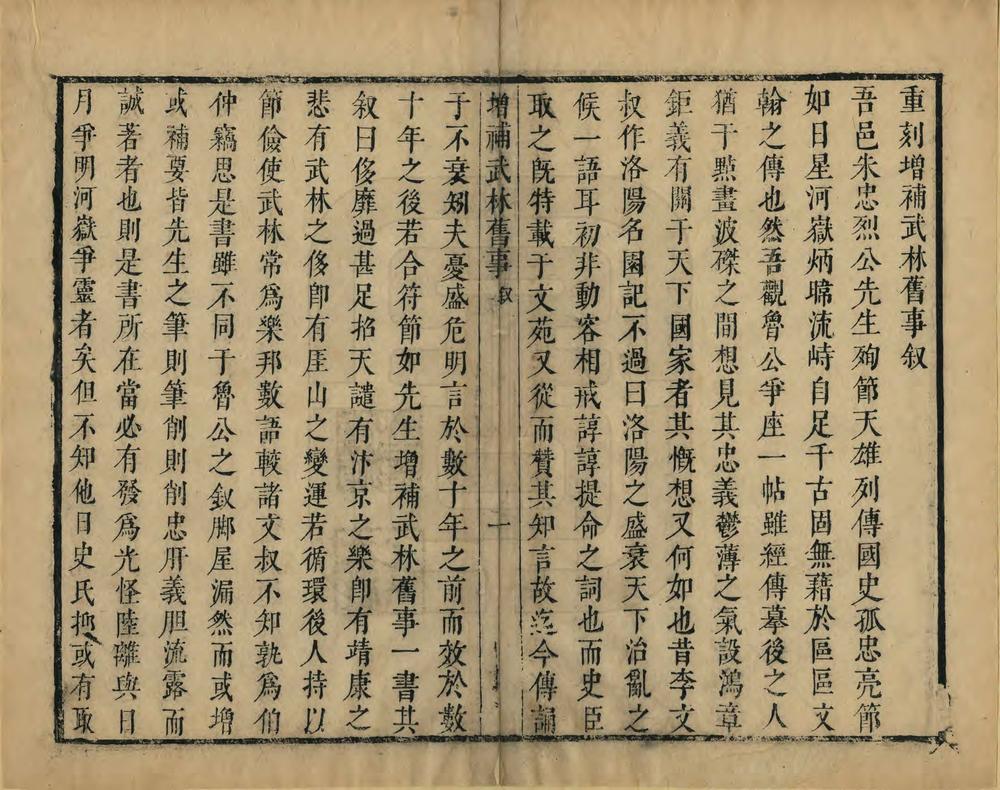 重刻增補武林舊事叙
吾邑朱忠烈公先生殉節天雄列傳國史孤忠亮節
如日星河嶽炳曜流峙自足千古固無藉於區區文
翰之傳也然吾觀魯公爭座一帖雖經傳摹後之人
猶于㸃畫波磔之間想見其忠義鬱薄之氣設鴻章
鉅義有關于天下國家者其慨想又何如也昔李文
叔作洛陽名園記不過曰洛陽之盛衰天下治亂之
候一語耳初非動容相戒諄諄提命之詞也而史臣
取之旣特載于文苑又從而贊其知言故迄今傳誦
增補武林舊事 叙 一
于不衰矧夫憂盛危明言於數十年之前而效於數
十年之後若合符節如先生增補武林舊事一書其
叙曰侈靡過甚足招天譴有汴京之樂卽有靖康之
悲有武林之侈卽有厓山之變運若循環後人持以
節儉使武林常爲樂邦數語較諸文叔不知孰爲伯
仲竊思是書雖不同于魯公之釵脚屋漏然而或增
或補要皆先生之筆則筆削則削忠肝義胆流露而
誠著者也則是書所在當必有發爲光怪陸離與日
月爭明河嶽爭靈者矣但不知他日史氏抑或有取